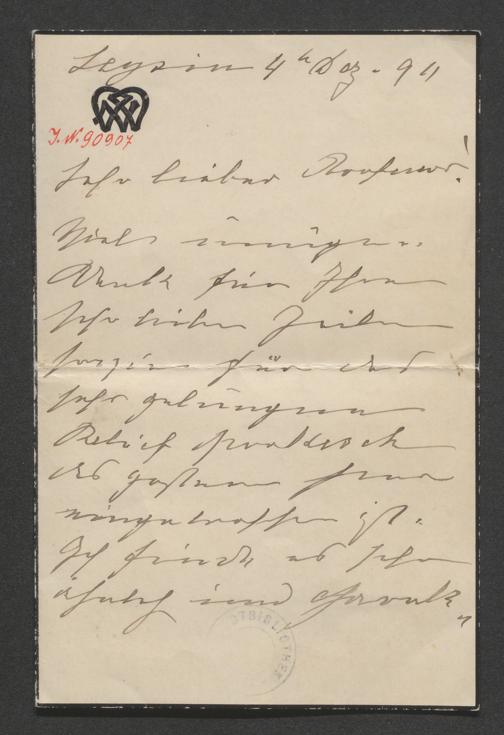 Leysin 4ᵗ Dez. 94
J.N. 90907
Sehr lieber Professor!
Viel innigen
Dank für Ihre
sehr lieben Zeilen
sowie für das
sehr gelungene
Relief
das gestern
eingetroffen ist.
Ich finde es sehr
ähnlich und
BIBLIOTHEK